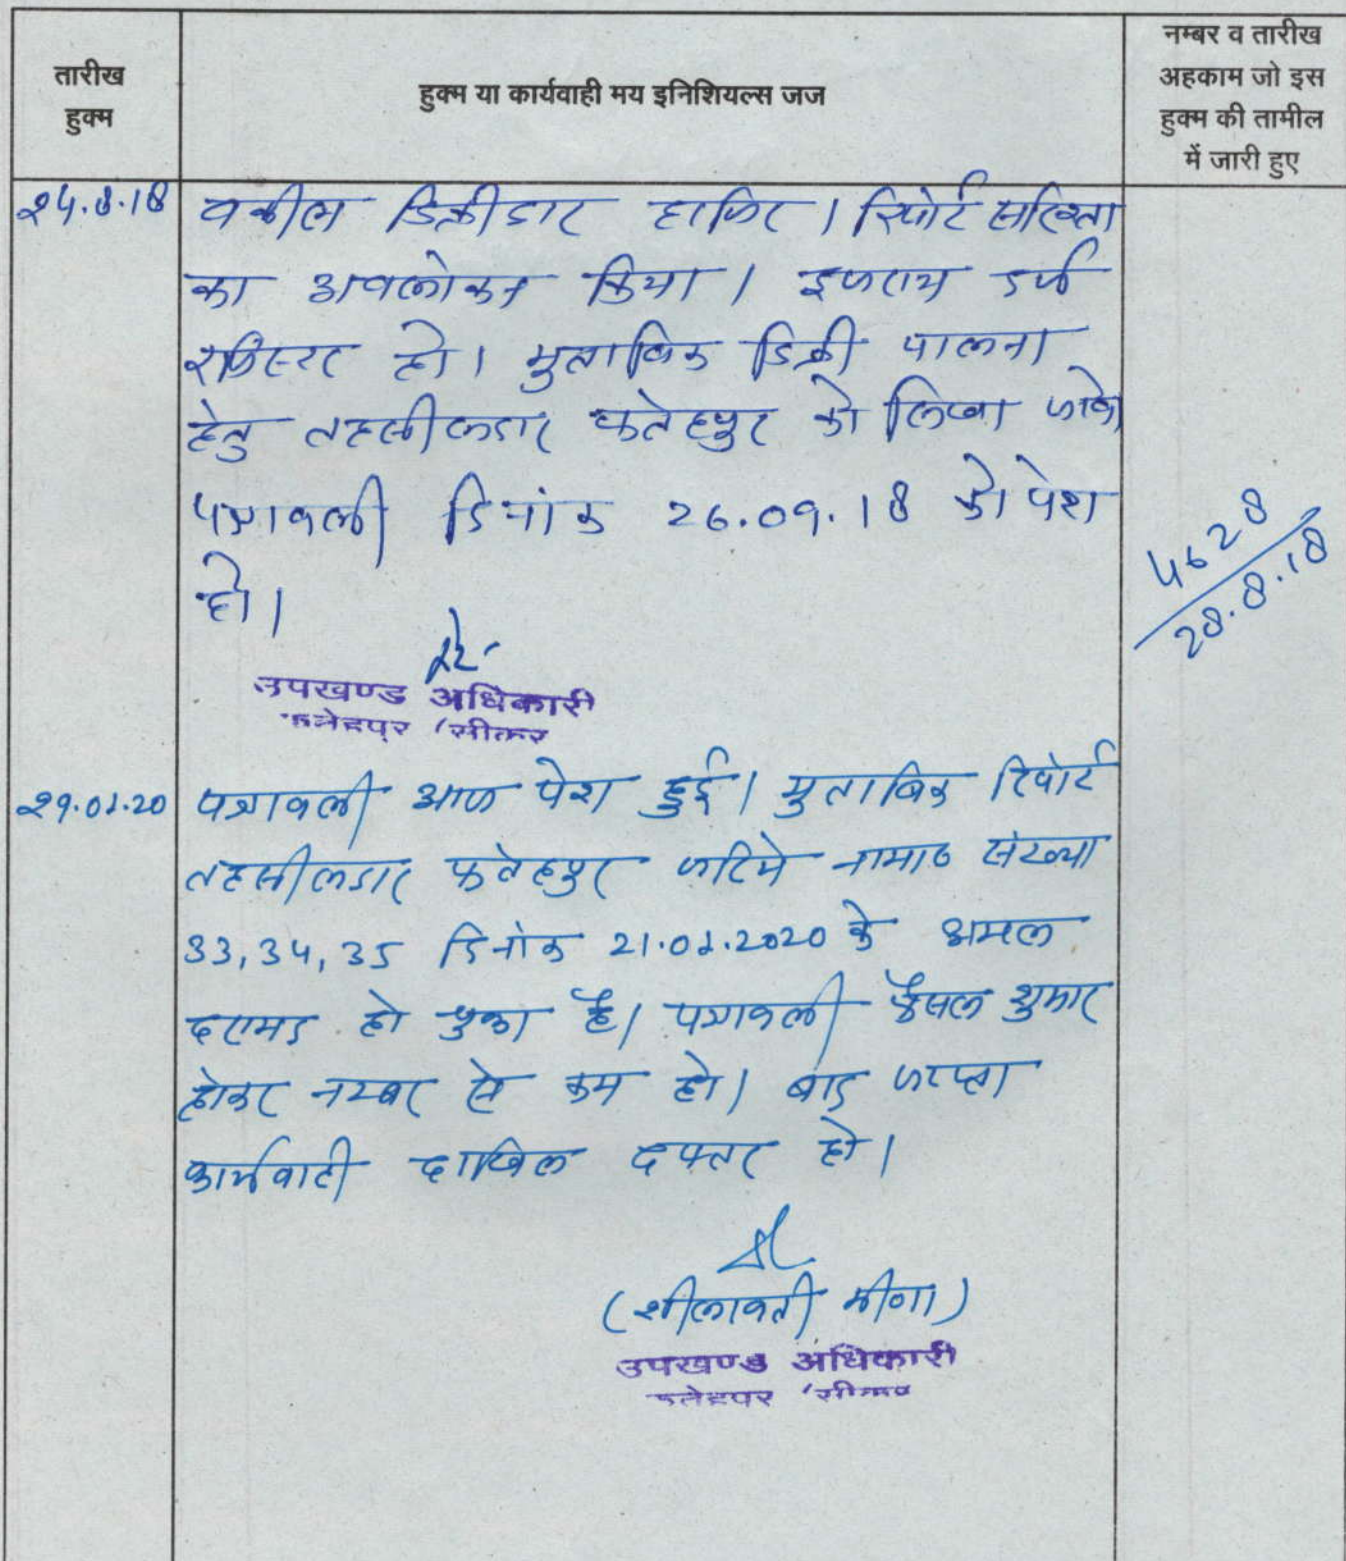 तारीख
हुक्म
हुक्म या कार्यवाही मय इनिशियल्स जज
नम्बर व तारीख
अहकाम जो इस
हुक्म की तामील
में जारी हुए
24.8.18 वकील डिक्रीदार हाजिर। रिपोर्ट सरिश्ता
का अवलोकन किया। इजराय दर्ज
रजिस्टर हो। मुताबिक डिक्री पालना
हेतु तहसीलदार फतेहपुर को लिखा जावे
पत्रावली दिनांक 26.09.18 को पेश
हो।
4628
28.8.18
उपखण्ड अधिकारी
फतेहपुर (सीकर
29.01.20 पत्रावली आज पेश हुई। मुताबिक रिपोर्ट
तहसीलदार फतेहपुर जरिये नामा० संख्या
33, 34, 35 दिनांक 21.01.2020 के अमल
दरामद हो चुका है। पत्रावली फैसल शुमार
होकर नम्बर से कम हो। बाद जाप्ता
कार्यवाही दाखिल दफ्तर हो।
(शीलावती मीणा)
उपखण्ड अधिकारी
फतेहपुर (सीकर